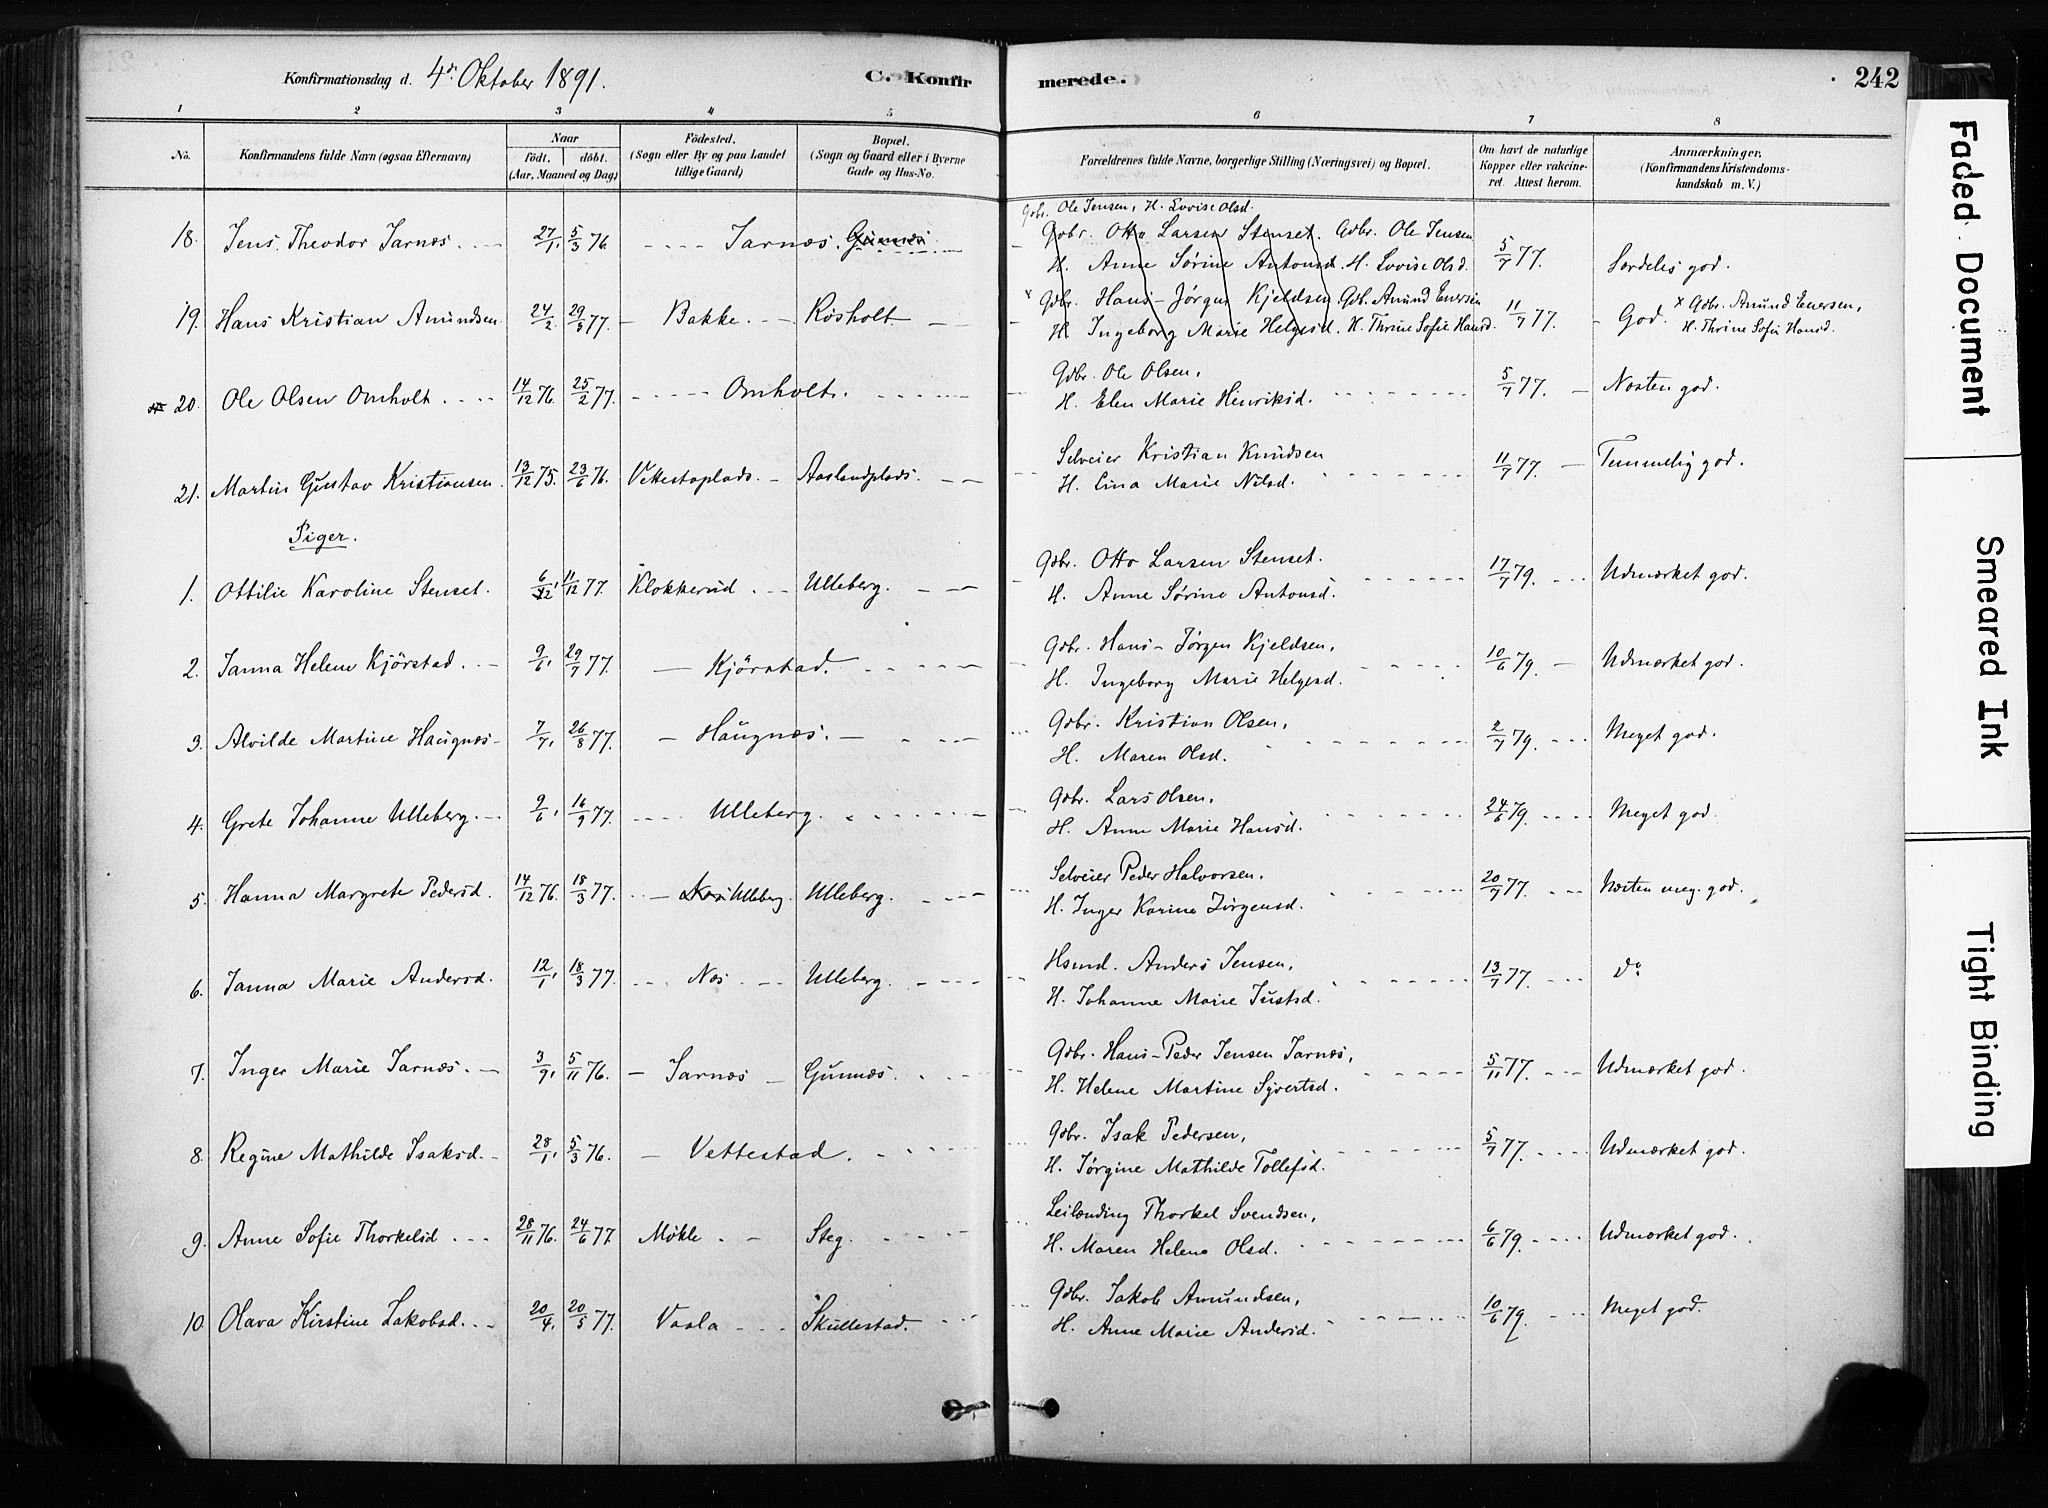 Konfirmationsdag d. 4de Oktober 1891. C. Konfirmerede. 242
1 2 3 4 5 6 7 8
No. Konfirmandens fulde Navn (ogsaa Efternavn) Naar født. døbt. (Aar, Maaned og Dag) Födested. (Sogn eller By og paa Landet tillige Gaard) Bopæl. (Sogn og Gaard eller i Byerne Gade og Hus-No. Forældrenes fulde Navne, borgerlige Stilling (Næringsvei) og Bopæl. Om havt de naturlige Kopper eller vakcineret. Attest herom. Anmærkninger. (Konfirmandens Kristendomskundskab m. V.)
Gdbr. Ole Jensen, H. Lovise Olsd.
18. Jens Theodor Jarnæs. 27/1, 5/3 76 Jarnæs. Gunnæs Gdbr. Otto Larsen Stenset. Gdbr. Ole Jensen 5/7 77. Særdeles god.
H. Anne Sørine Antonsd. H. Lovise Olsd.
19. Hans Kristian Amundsen 24/2. 29/3 77. Bakke. Rösholt x Gdbr. Hans-Jørgen Kjeldsen. Gdb. Amund Enersen 11/7 77. God. x Gdbr. Amund Enersen,
H. Ingeborg Marie Helgesd. H. Thrine Sofie Hansd. H. Thrine Sofie Hansd.
20. Ole Olsen Omholt. 14/12 76. 25/2 77. Omholt. Gdbr. Ole Olsen, 5/7 77. Næsten god.
H. Elen Marie Henriksd.
21. Martin Gustav Kristiansen. 13/12 75. 23/6 76. Vettestaplads. Aaslandplads. Selveier Kristian Knudsen 11/7 77. Temmelig god.
H. Lina Marie Nilsd.
Piger.
1. Ottilie Karoline Stenset. 6/12, 11/12 77. Klokkerud Ulleberg. Gdbr. Otto Larsen Stenset. 17/7 79. Udmærket god.
H. Anne Sørine Antonsd.
2. Janna Helene Kjörstad. 9/6, 29/7 77. Kjörstad. Gdbr. Hans-Jørgen Kjeldsen, 10/6 79. Udmærket god.
H. Ingeborg Marie Helgesd.
3. Alvilde Martine Haugnæs 7/7, 26/8 77. Haugnæs. Gdbr. Kristian Olsen, 2/7 79. Meget god.
H. Maren Olsd.
4. Grete Johanne Ulleberg. 9/6, 16/9 77. Ulleberg. Gdbr. Lars Olsen, 24/6 79. Meget god.
H. Anne Marie Hansd.
5. Hanna Margrete Pedersd. 14/12 76. 18/3 77. Ulleberg. Ulleberg. Selveier Peder Halvorsen. 20/7 77. Næsten meg. god.
H. Inger Karine Jörgensd.
6. Janna Marie Andersd. 12/1, 18/3 77. Næs Ulleberg. Hsmd. Anders Jensen, 13/7 77. Do
H. Johanne Marie Justsd.
7. Inger Marie Jarnæs. 3/9, 5/11 76. Jarnæs Gunnæs. Gdbr. Hans-Peder Jensen Jarnæs, 5/11 77. Udmærket god.
H. Helene Martine Syvertsd.
8. Regine Mathilde Isaksd. 28/1, 5/3 76. Vettestad. Gdbr. Isak Pedersen, 5/7 77. Udmærket god.
H. Jørgine Mathilde Tollefsd.
9. Anne Sofie Thorkelsd 28/11 76. 24/6 77. Møkle. Steg. Leilænding Thorkel Svendsen, 6/6 79. Udmærket god.
H. Maren Helene Olsd.
10. Olava Kirstine Jakobsd. 20/4, 20/5 77. Vasla Skullestad. Gdbr. Jakob Amundsen, 10/6 79. Meget god.
H. Anne Marie Andersd.
Faded Document
Smeared Ink
Tight Binding